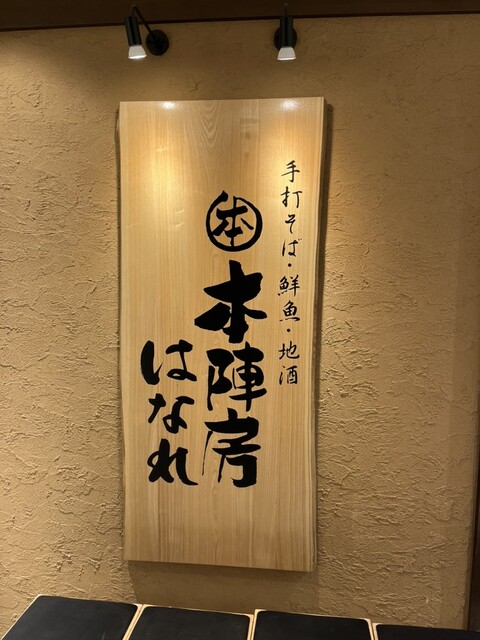 手打そば・鮮魚・地酒
本
本陣房
はなれ